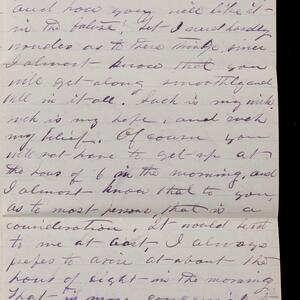 and how you will like it
in the future! Yet I need hardly
wonder as to these things since
I almost know that you
will get along smoothly and
well in it all. Such is my wish
such is my hope, and such
my belief. Of course you
will not have to get up at
the hour of 6 in the morning, and
I almost know that to you,
as to most persons, that is a
consideration. It would be
to me at least. I always
prefer to arise at about the
hour of eight in the morning
That is more